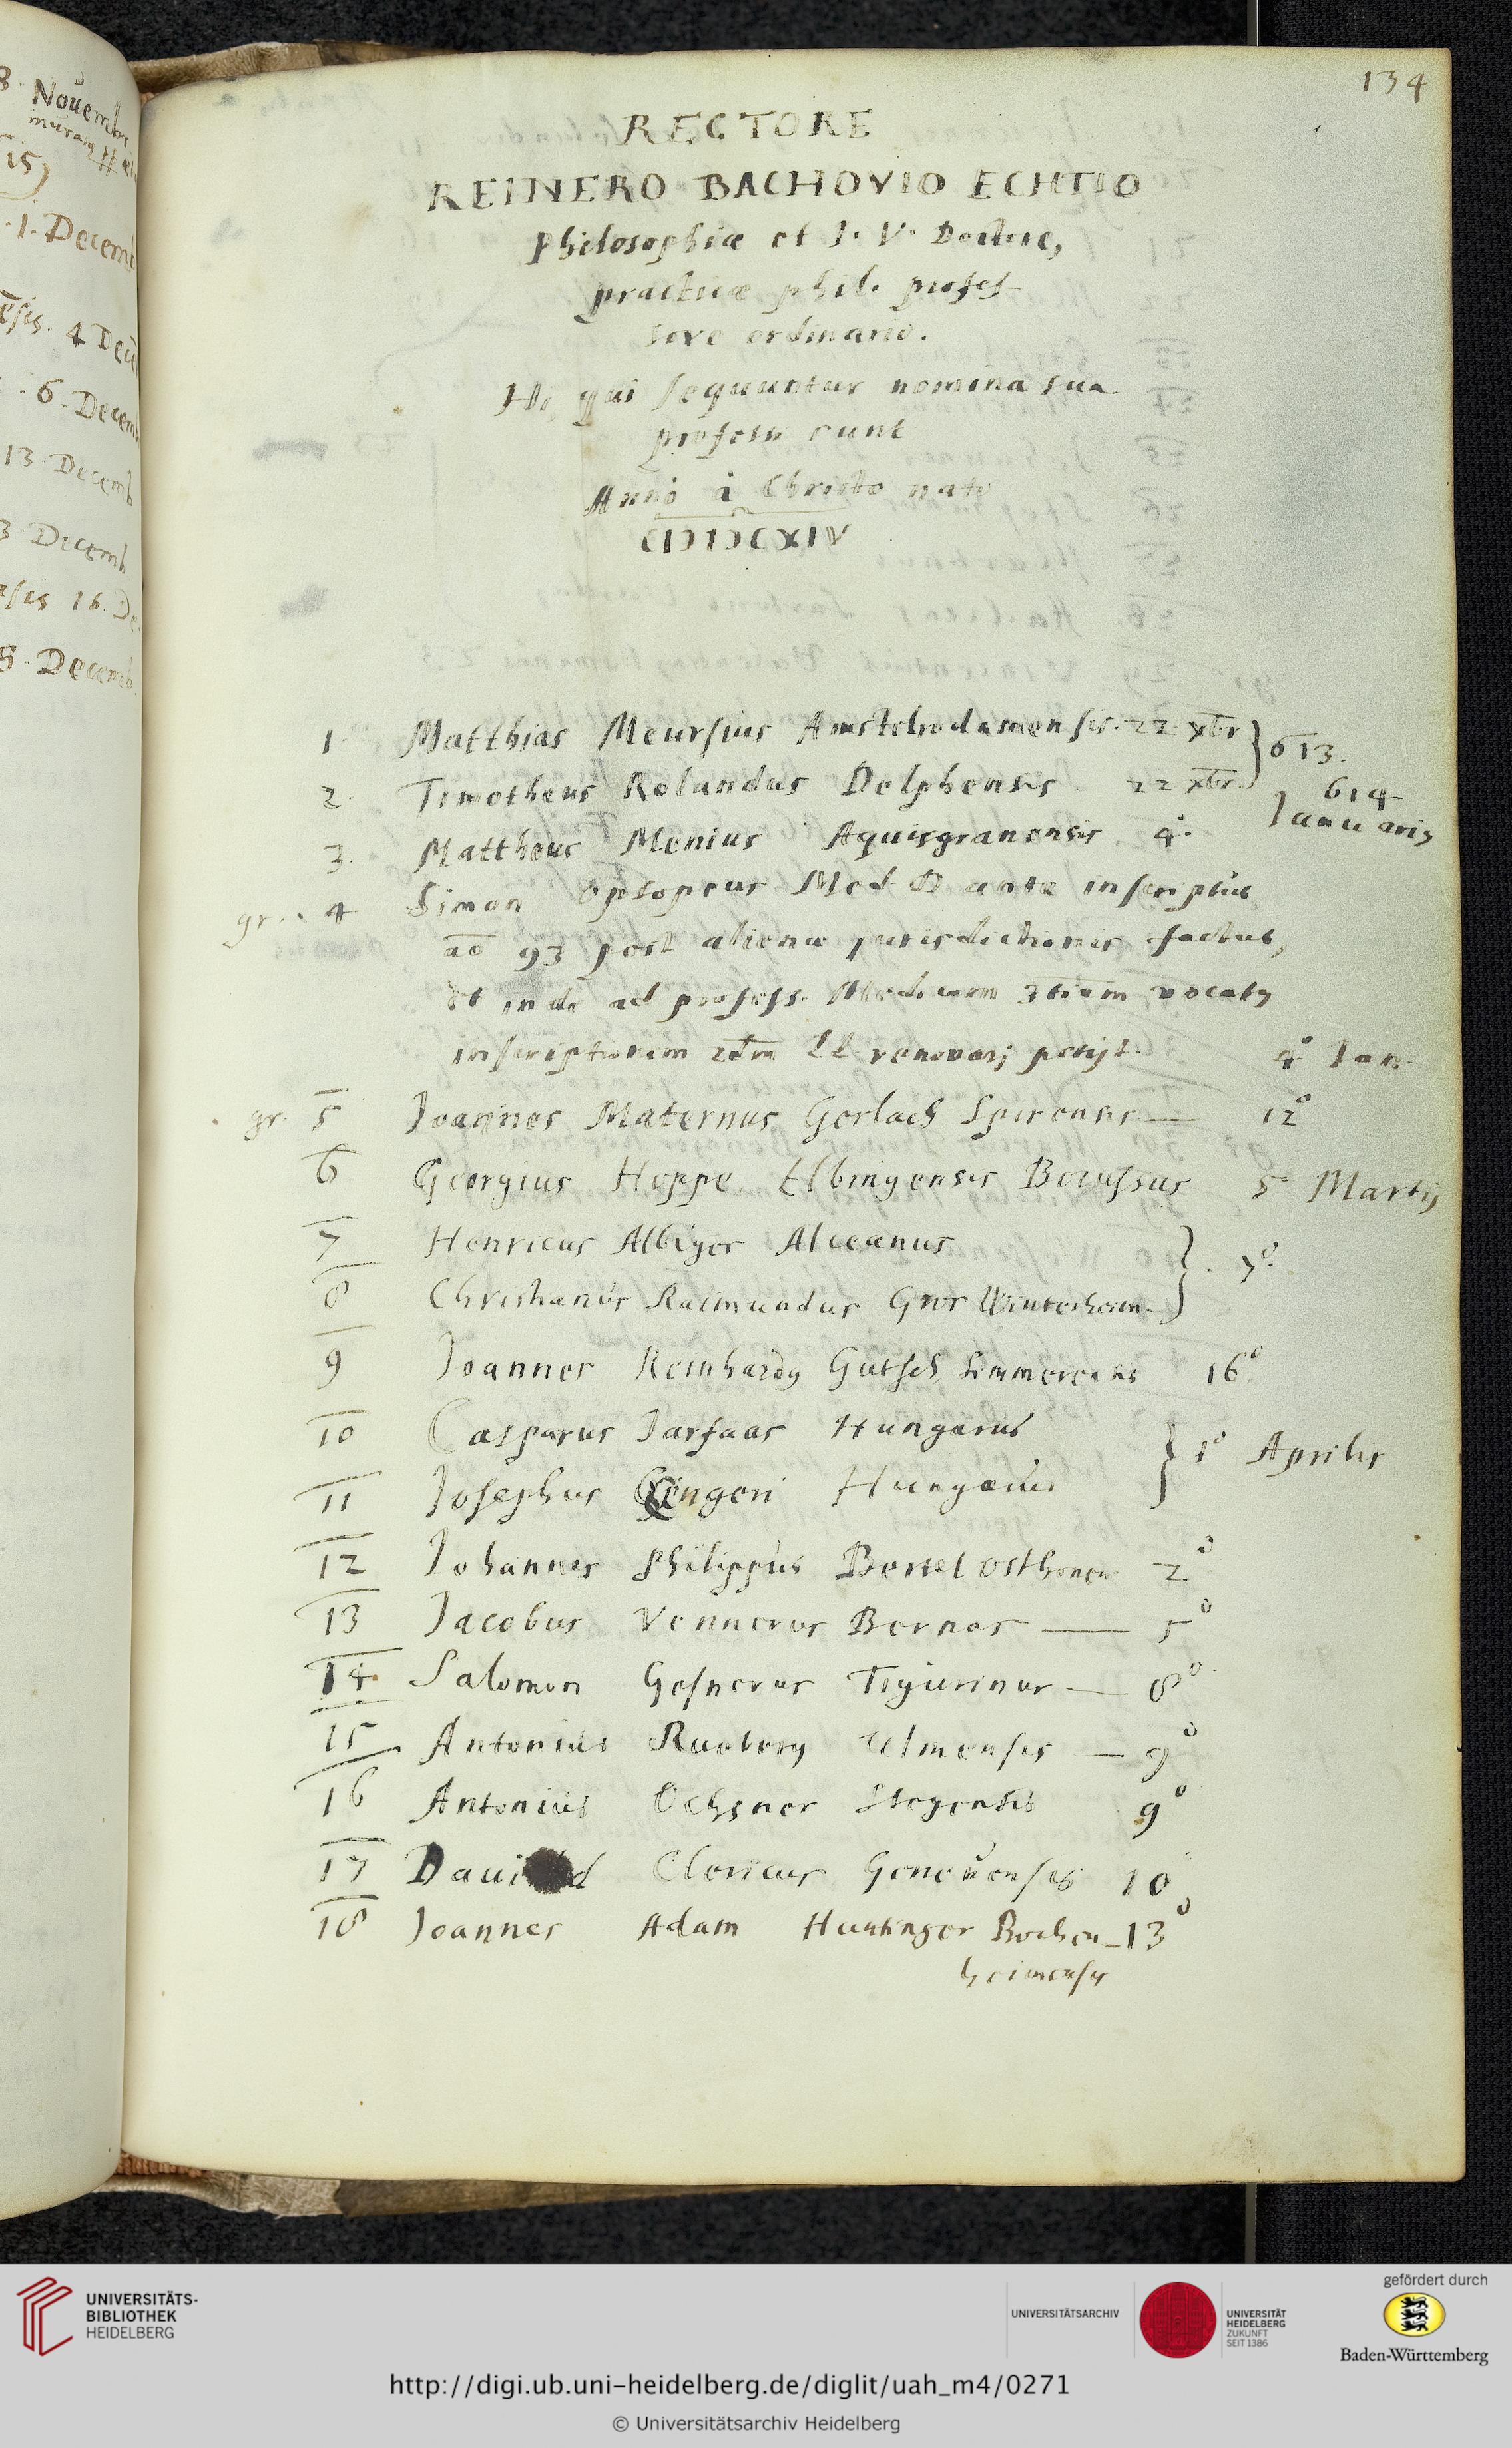 134
8. Nouemb
15)
1. Decemb
4 Dec
6. Decemb
13 Decemb
3 Decemb
16. De
5. Decemb
RECTORE
REINERO BACHOVIO ECHTIO
Philosophiæ et J. V. Doctore,
practicæ phil. profes-
sore ordinario.
Hi qui sequuntur nomina sua
professi sunt
Anno à Christo nato
CIƆIƆCXIV
1. Matthias Meursius Amstelrodamensis. 22 xbr } 613.
2. Timotheus Rolandus Delphensis 22 xbr.
614
Januarij
3. Mattheus Menius Aquisgranensis 4.
gr. 4 Simon Opsopeus Med D ante inscriptus
ao 93 post alienæ jurisdictionis factus,
et inde ad profess. Medicam 3tiam vocatus
inscriptionem 2dm renovarj petijt. 4° Jan.
gr. 5 Joannes Maternus Gerlach Spirensis — 12°
6 Georgius Hoppe Elbingensis Borussus 5 Martij
7 Henricus Albiger Alceanus } 7°.
8 Christianus Raimundus Gros Winterheim.
9 Joannes Reinhardus Gutsch Simmerensis 16°
10 Casparus Jarfaas Hungarus } 1° Aprilis
11 Josephus Hungarus
12 Johannes Philippus Bertel Osthonen 2°
13 Jacobus Vennerus Bernas — 5°
14 Salomon Gesnerus Tigurinus — 8°
15 Antonius Ulmensis — 9°
16 Antonius Ochsner 9°
17 Dauid Clericus Geneuensis 10
18 Joannes Adam Huntinger Bochen- 13°
heimensis
UNIVERSITÄTS-
BIBLIOTHEK
HEIDELBERG
UNIVERSITÄTSARCHIV
UNIVERSITÄT
HEIDELBERG
ZUKUNFT
SEIT 1386
gefördert durch
Baden-Württemberg
http://digi.ub.uni-heidelberg.de/diglit/uah_m4/0271
© Universitätsarchiv Heidelberg